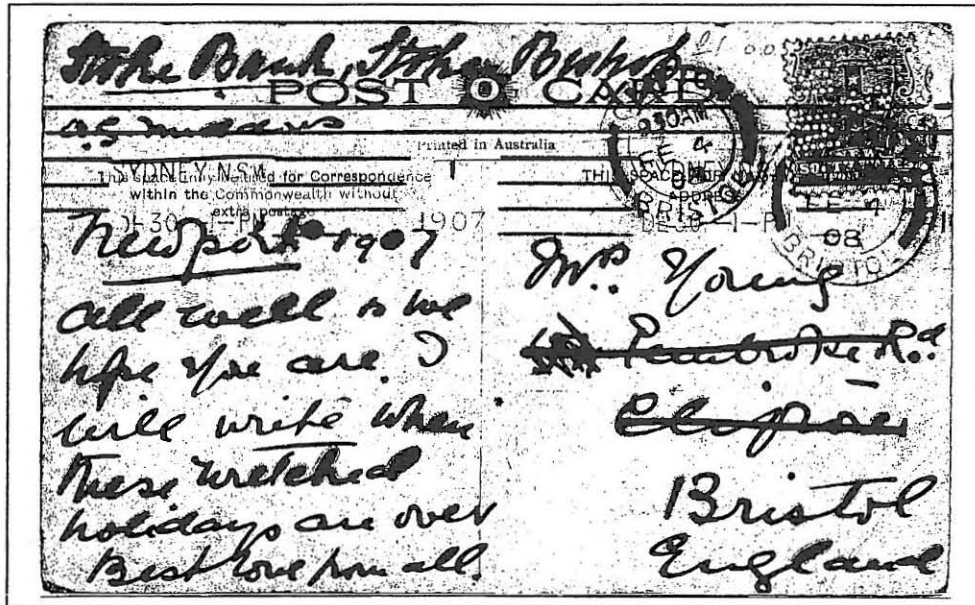 Stoke Bank, Stoke Bishop
POST CARD
Printed in Australia
SYDNEY. N.S.W.
This space may be used for Correspondence
THIS SPACE FOR
within the Commonwealth without
ADDRESS
extra postage
DE 30 1-PM 1907
DE 30 1-PM
9 30 AM
FE 4
08
BRISTOL
FE 4
08
BRISTOL
Newport 1907
all well & we
hope you are. I
will write when
these wretched
holidays are over
Best love from all.
Mrs. Young
Pembroke Rd
Clifton
Bristol
England